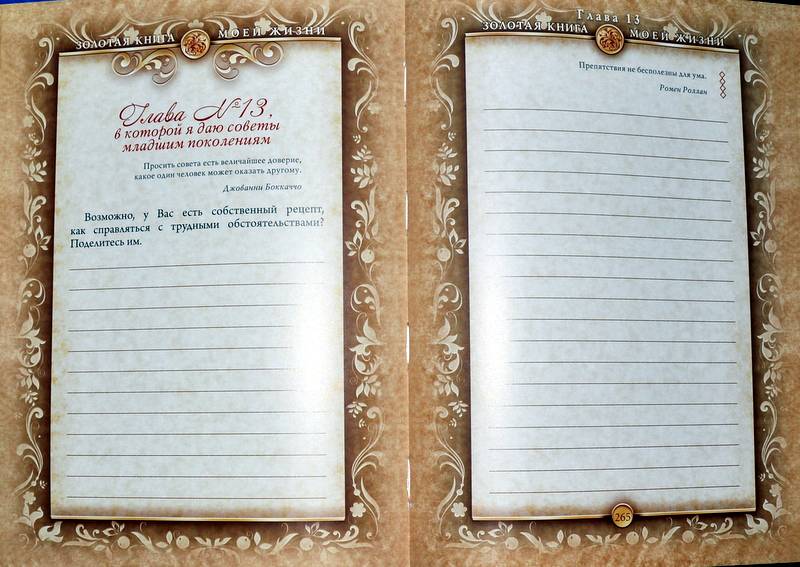 ЗОЛОТАЯ КНИГА МОЕЙ ЖИЗНИ
Глава №13,
в которой я даю советы
младшим поколениям
Просить совета есть величайшее доверие,
какое один человек может оказать другому.
Джованни Боккаччо
Возможно, у Вас есть собственный рецепт,
как справляться с трудными обстоятельствами?
Поделитесь им.
Глава 13
ЗОЛОТАЯ КНИГА МОЕЙ ЖИЗНИ
Препятствия не бесполезны для ума.
Ромен Роллан
265